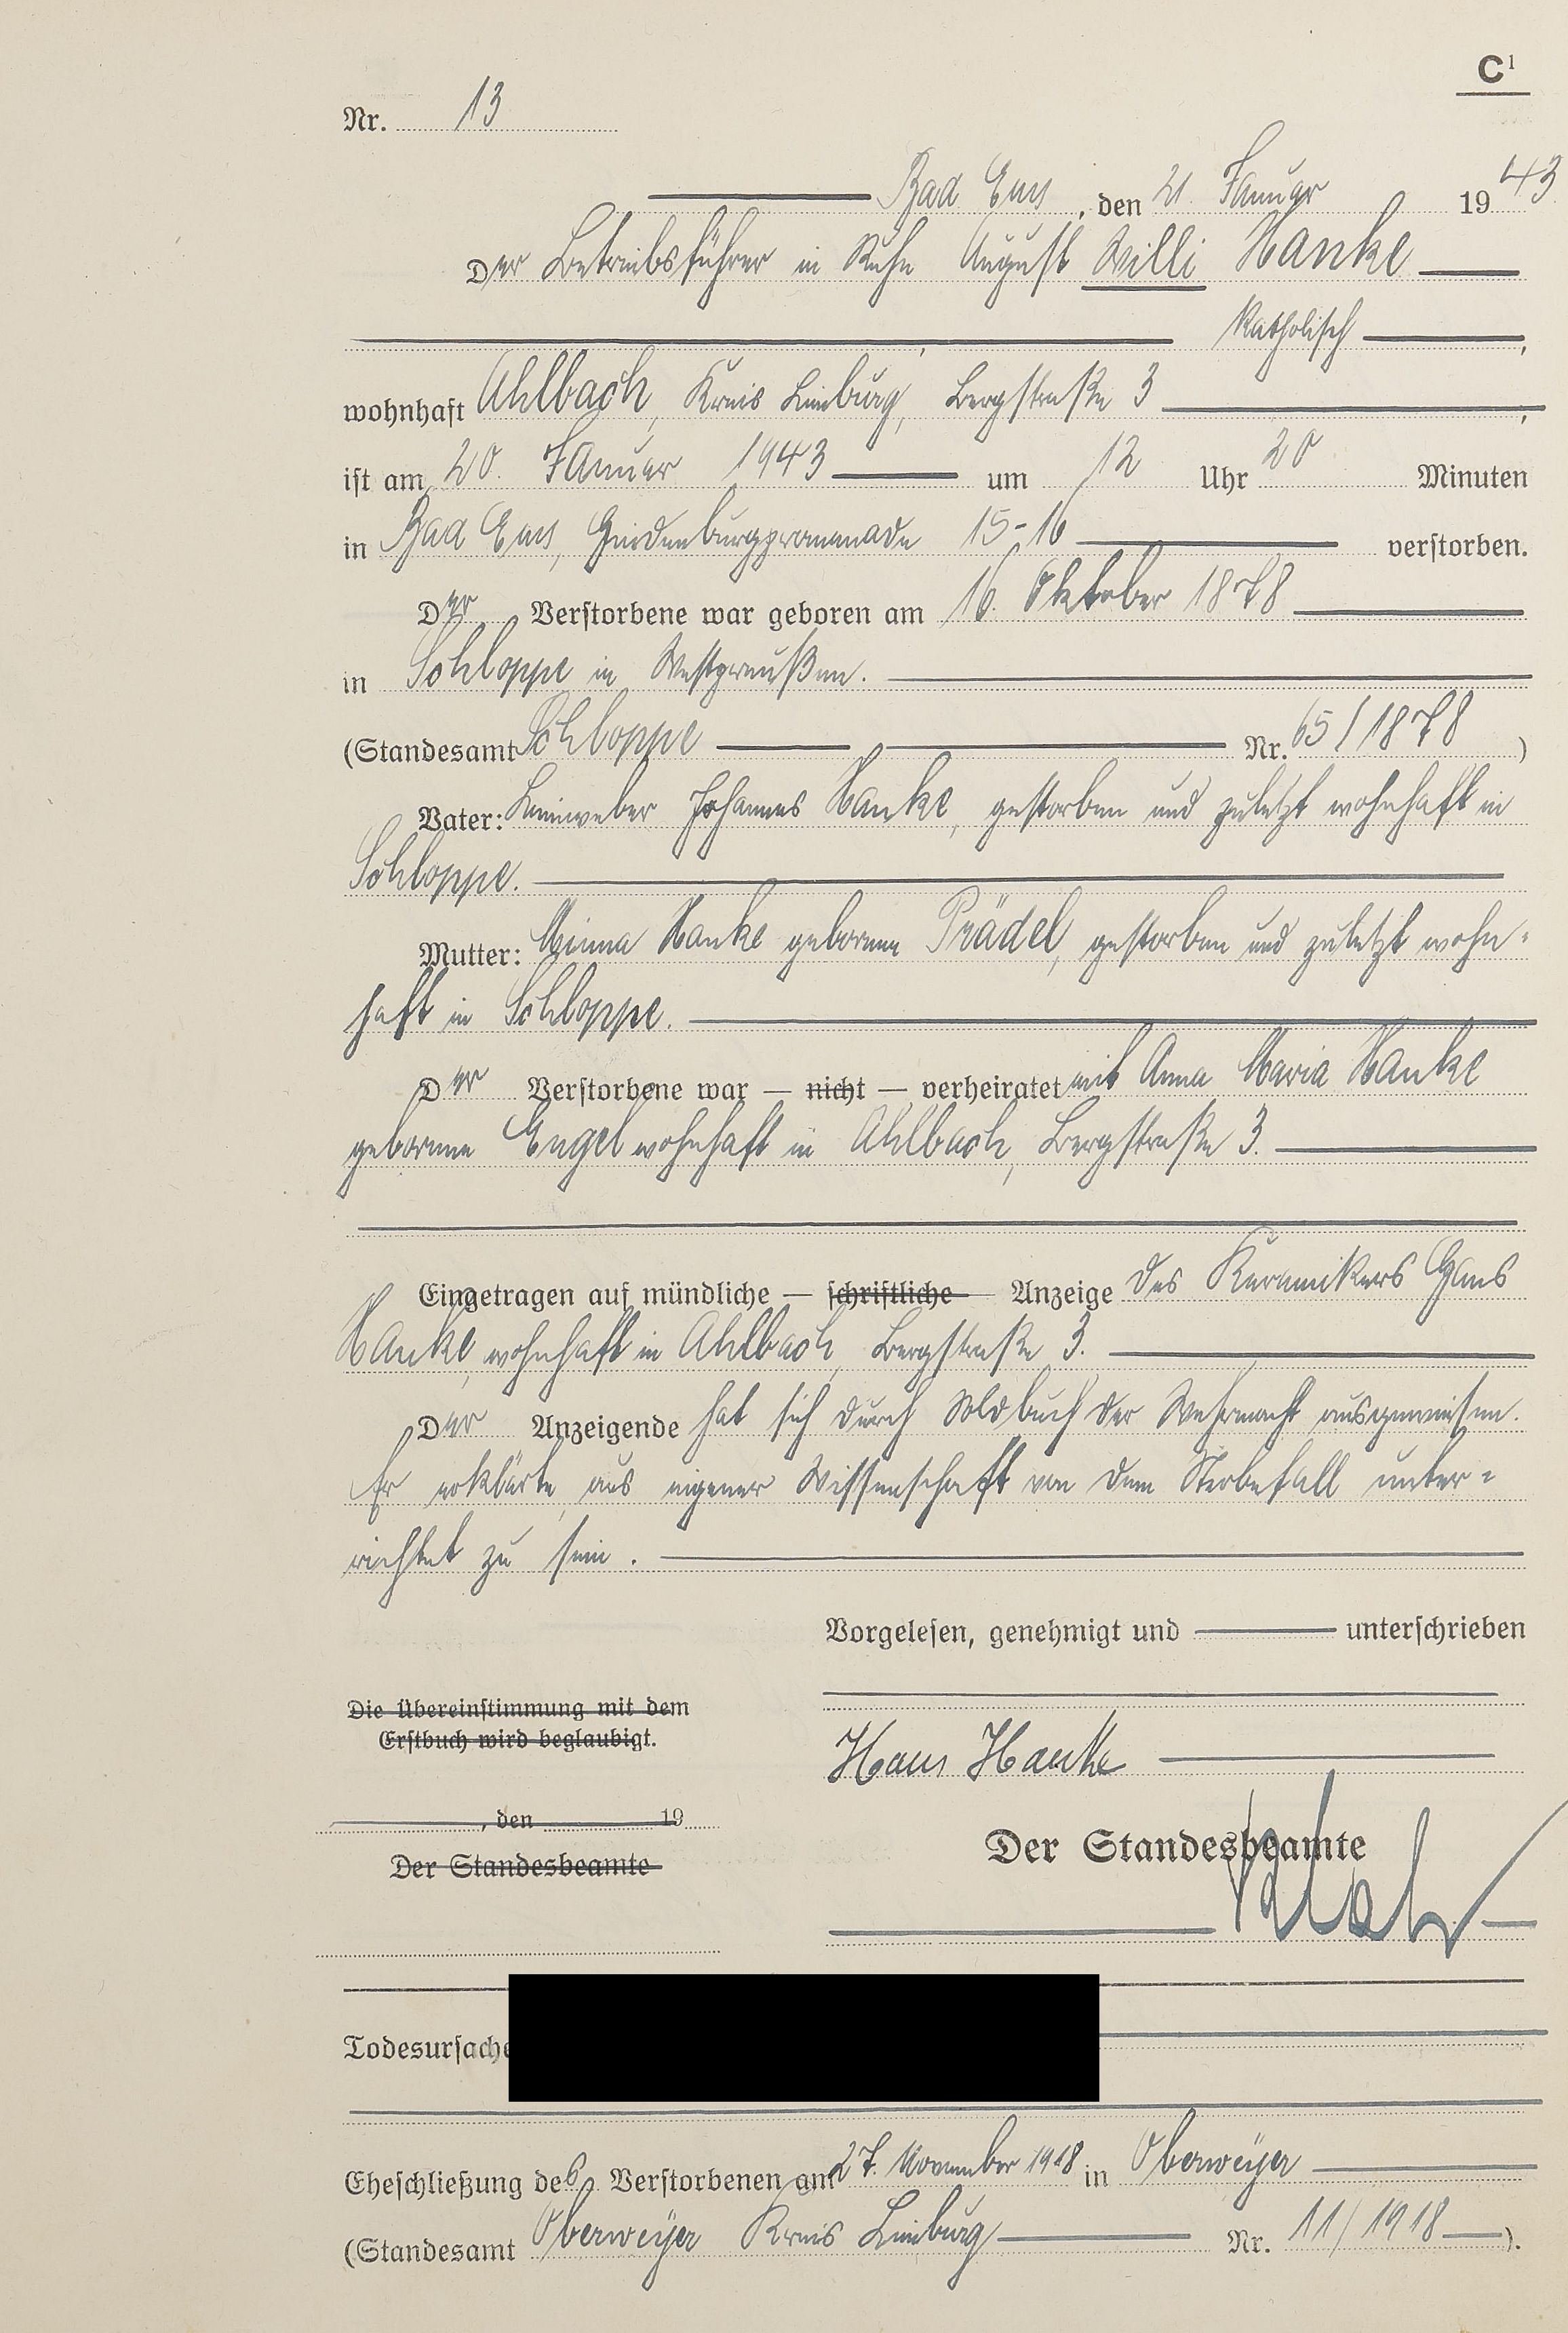 C¹
Nr. 13
Bad Ems, den 21. Januar 1943
Der Betriebsführer in Ruhe August Willi Hanke
katholisch,
wohnhaft Ahlbach, Kreis Limburg, Bergstraße 3,
ist am 20. Januar 1943 um 12 Uhr 20 Minuten
in Bad Ems, Hindenburgpromenade 15-16 verstorben.
Der Verstorbene war geboren am 16. Oktober 1878
in Schloppe in Westpreußen.
(Standesamt Schloppe Nr. 65/1878)
Vater: Leinweber Johannes Hanke, gestorben und zuletzt wohnhaft in
Schloppe.
Mutter: Minna Hanke geborene Prädel, gestorben und zuletzt wohn-
haft in Schloppe.
Der Verstorbene war — nicht — verheiratet mit Anna Maria Hanke
geborene Engel wohnhaft in Ahlbach, Bergstraße 3.
Eingetragen auf mündliche — schriftliche — Anzeige des Keramikers Hans
Hanke, wohnhaft in Ahlbach, Bergstraße 3.
Der Anzeigende hat sich durch Soldbuch der Wehrmacht ausgewiesen.
Er erklärte, aus eigener Wissenschaft von dem Sterbefall unter-
richtet zu sein.
Vorgelesen, genehmigt und unterschrieben
Die Übereinstimmung mit dem
Erstbuch wird beglaubigt.
Hans Hanke
, den 19
Der Standesbeamte
Der Standesbeamte
Todesursache
Eheschließung des Verstorbenen am 27. November 1918 in Oberweyer
(Standesamt Oberweyer Kreis Limburg Nr. 11/1918).